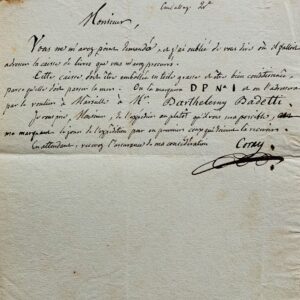 Monsieur,
Vous ne m'avez point demandé, et j'ai oublié de vous dire où il falloit
adresser la caisse de livres que vous m'avez procurés.
Cette caisse doit être emballée en toile grasse et très bien conditionnée,
parce qu'elle doit passer la mer. On la marquera D P N° 1 et on l'adressera
par le roulier à Marseille à Mr. Barthelemy Badetti.
Je vous prie, Monsieur, de l'expédier au plutôt qu'il vous sera possible,
me marquant le jour de l'expédition par un premier
En attendant, recevez l'assurance de ma considération
Coray